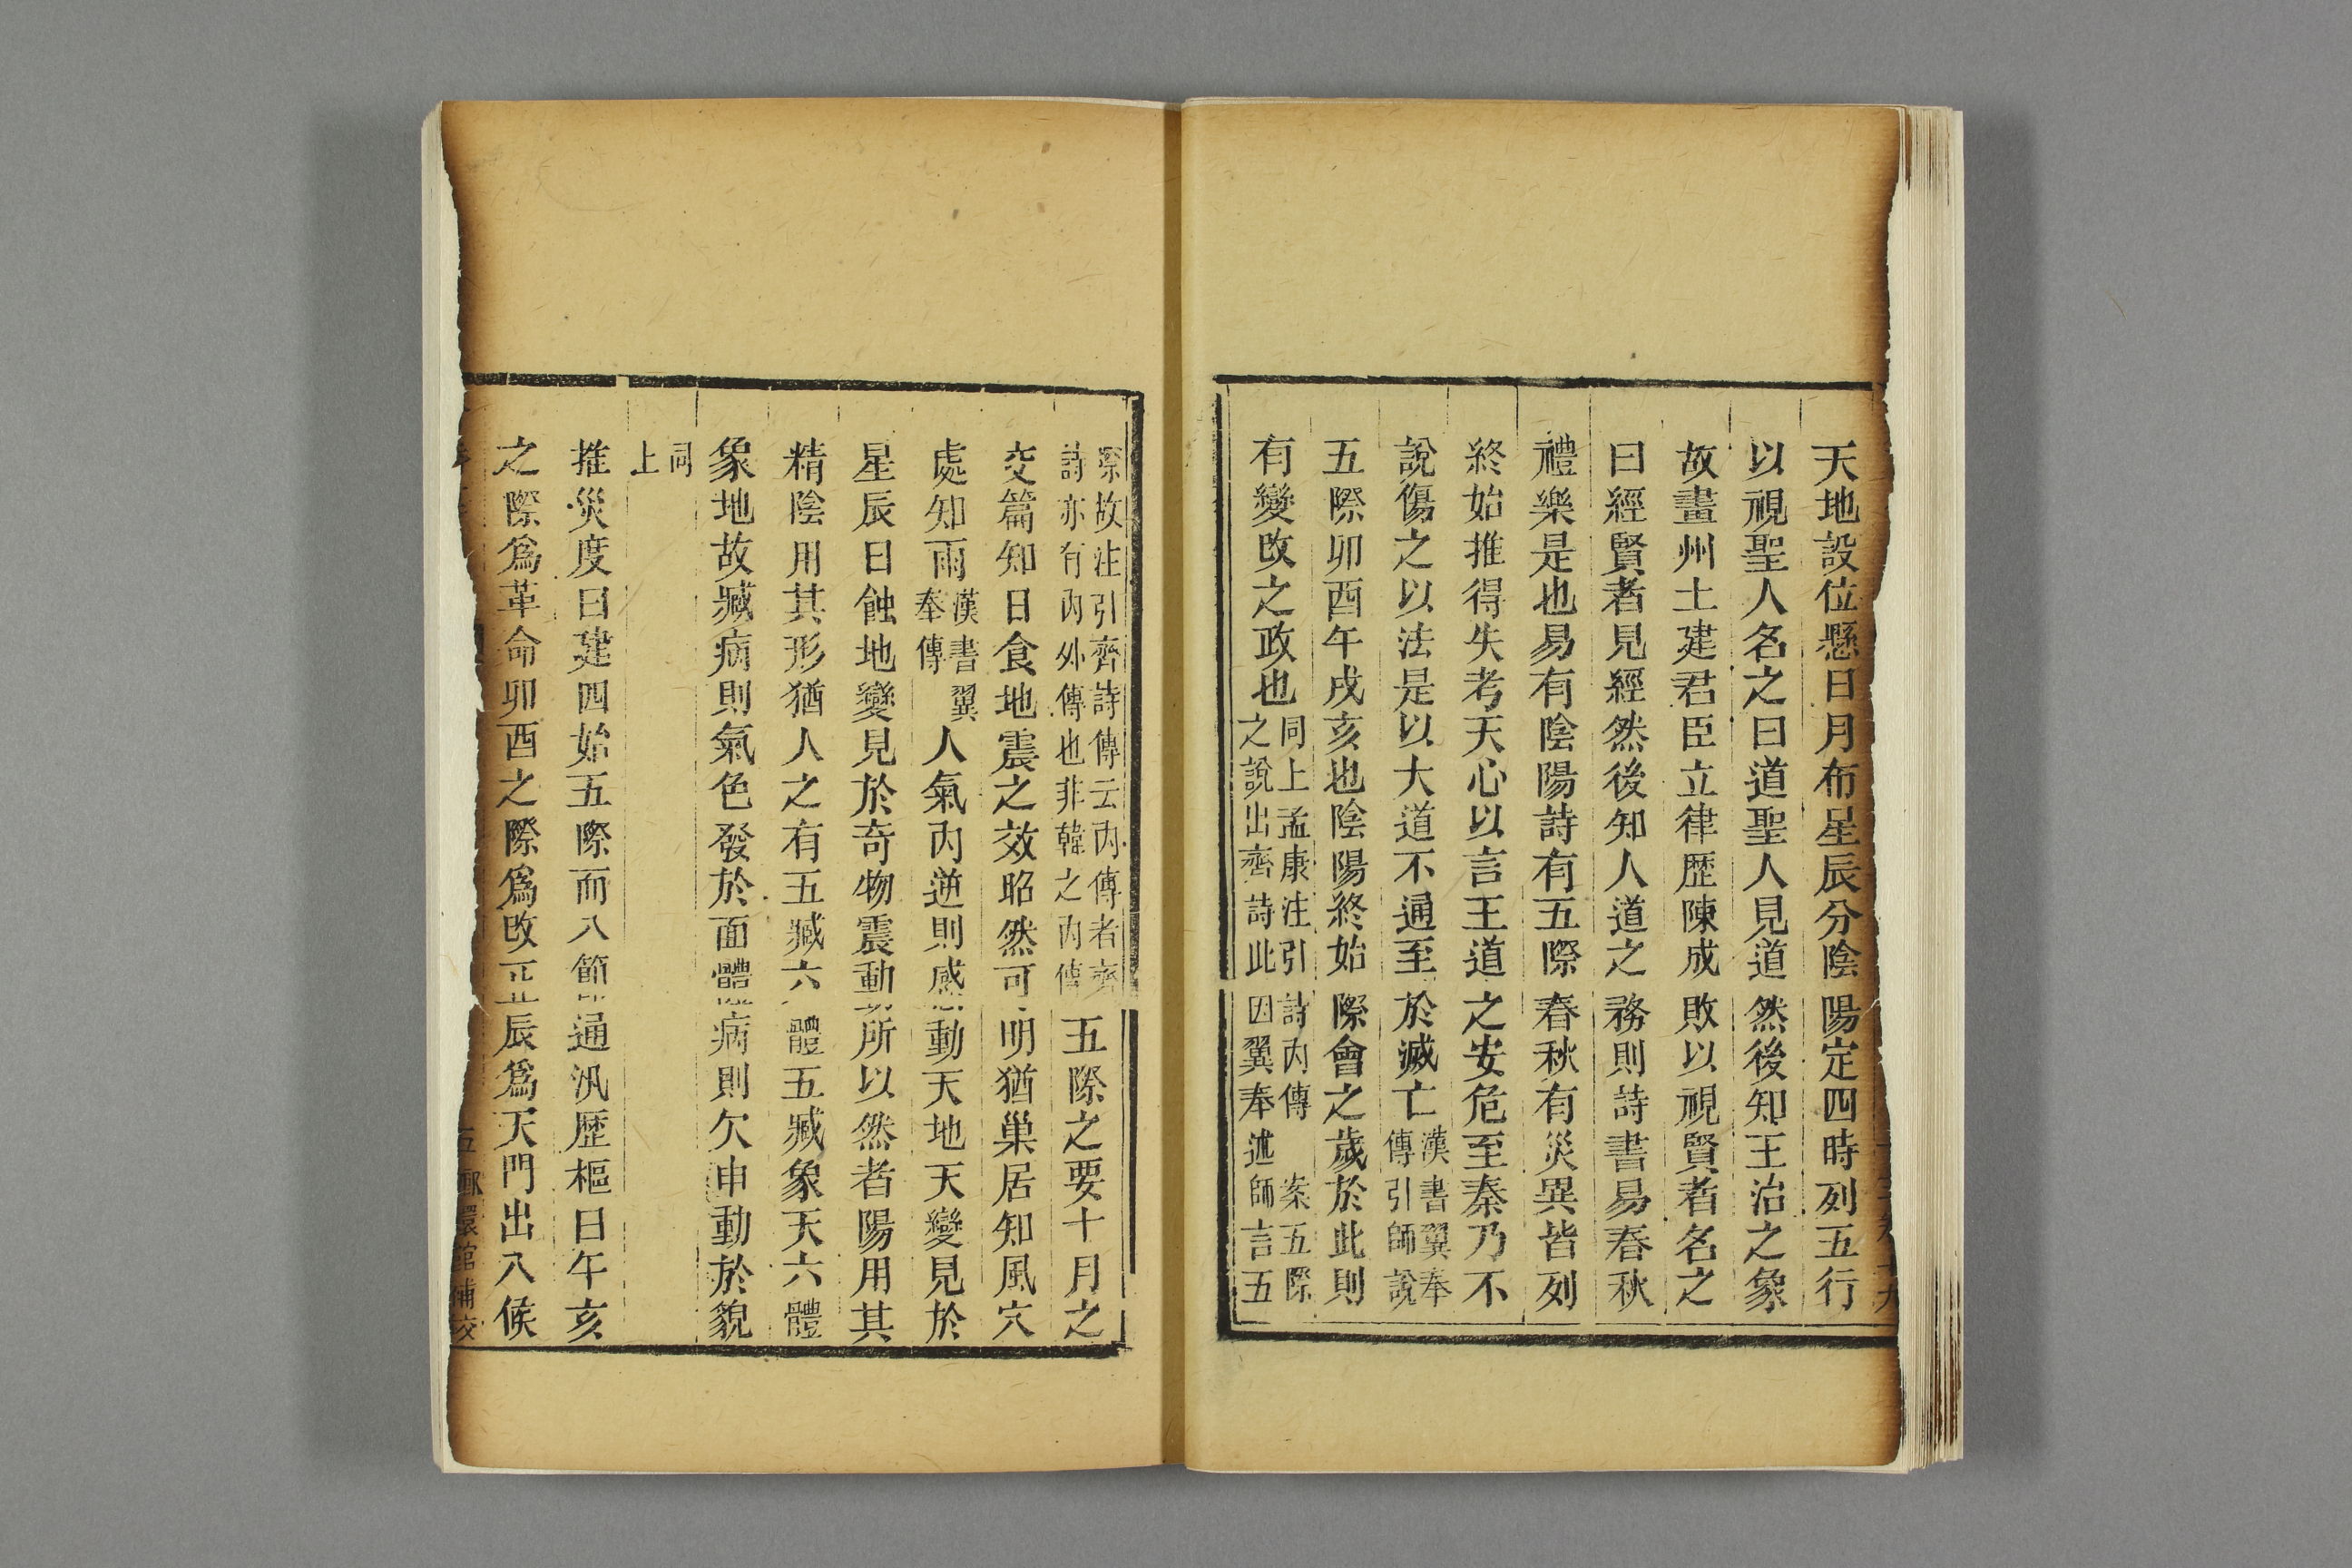 天地設位懸日月布星辰分陰陽定四時列五行
以視聖人名之曰道聖人見道然後知王治之象
故畫州土建君臣立律歴陳成敗以視賢者名之
曰經賢者見經然後知人道之務則詩書易春秋
禮樂是也易有陰陽詩有五際春秋有災異皆列
終始推得失考天心以言王道之安危至秦乃不
說傷之以法是以大道不通至於滅亡漢書翼奉
傳引師說
五際卯酉午戌亥也陰陽終始際會之歲於此則
有變改之政也同上孟康注引詩內傳 案五際
之說出齊詩此因翼奉述師言五
際故注引齊詩傳云內傳者齊
詩亦有內外傳也非韓之內傳
五際之要十月之
交篇知日食地震之效昭然可明猶巢居知風穴
處知雨漢書翼
奉傳
人氣內逆則感動天地天變見於
星辰日蝕地變見於奇物震動所以然者陽用其
精陰用其形猶人之有五臧六體五臧象天六體
象地故臧病則氣色發於面體病則欠申動於貌
同
上
推災度曰建四始五際而八節通汎歴樞曰午亥
之際爲革命卯酉之際爲改正辰爲天門出入候
嫏嬛館補校